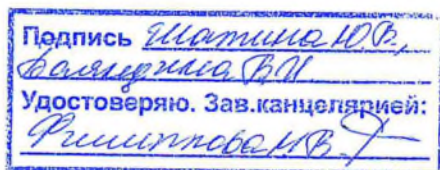 Подпись Шатина Ю.В.,
В.И
Удостоверяю. Зав.канцелярией:
Филиппова Н.В.